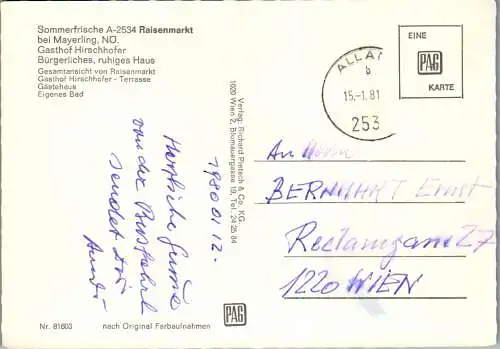 Sommerfrische A-2534 Raisenmarkt
bei Mayerling, NÖ.
Gasthof Hirschhofer
Bürgerliches, ruhiges Haus
Gesamtansicht von Raisenmarkt
Gasthof Hirschhofer - Terrasse
Gästehaus
Eigenes Bad
Verlag: Richard Pietsch & Co. KG.
1020 Wien 2, Blumauergasse 19, Tel. 24 25 84
EINE
PAG
KARTE
ALLAN
b
15.-1.81
253
An Herrn
BERNHART Ernst
Reclamgasse 27
1220 WIEN
Herzliche Grüsse
von der
sendet Dir
PAG
Nr. 81603
nach Original Farbaufnahmen